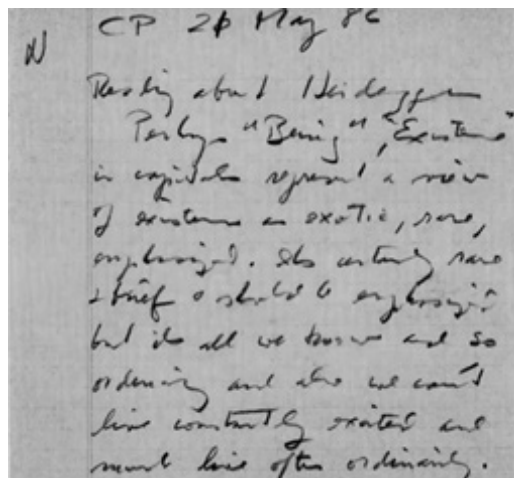 N CP 21 May 86
Reading about Heidegger
Perhaps "Being", "Existence"
in capitals represent a view
of existence as exotic, rare,
emphasized. Its certainly rare
& brief & should be emphasized
but its all we know and so
ordinary and also we can't
live constantly excited and
must live often ordinarily.